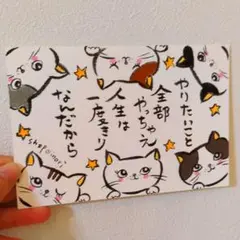 やりたいこと
全部
やっちゃえ
人生は
一度きり
なんだから